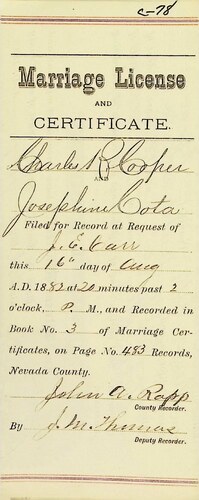 C-78
Marriage License
AND
CERTIFICATE.
Charles R. Cooper
AND
Josephine Cota
Filed for Record at Request of
J. E. Carr
this 16th day of Aug
A.D. 1882 at 20 minutes past 2
o'clock, P. M., and Recorded in
Book No. 3 of Marriage Cer-
tificates, on Page No. 483 Records,
Nevada County.
John A. Rapp
County Recorder.
By J. M. Thomas
Deputy Recorder.